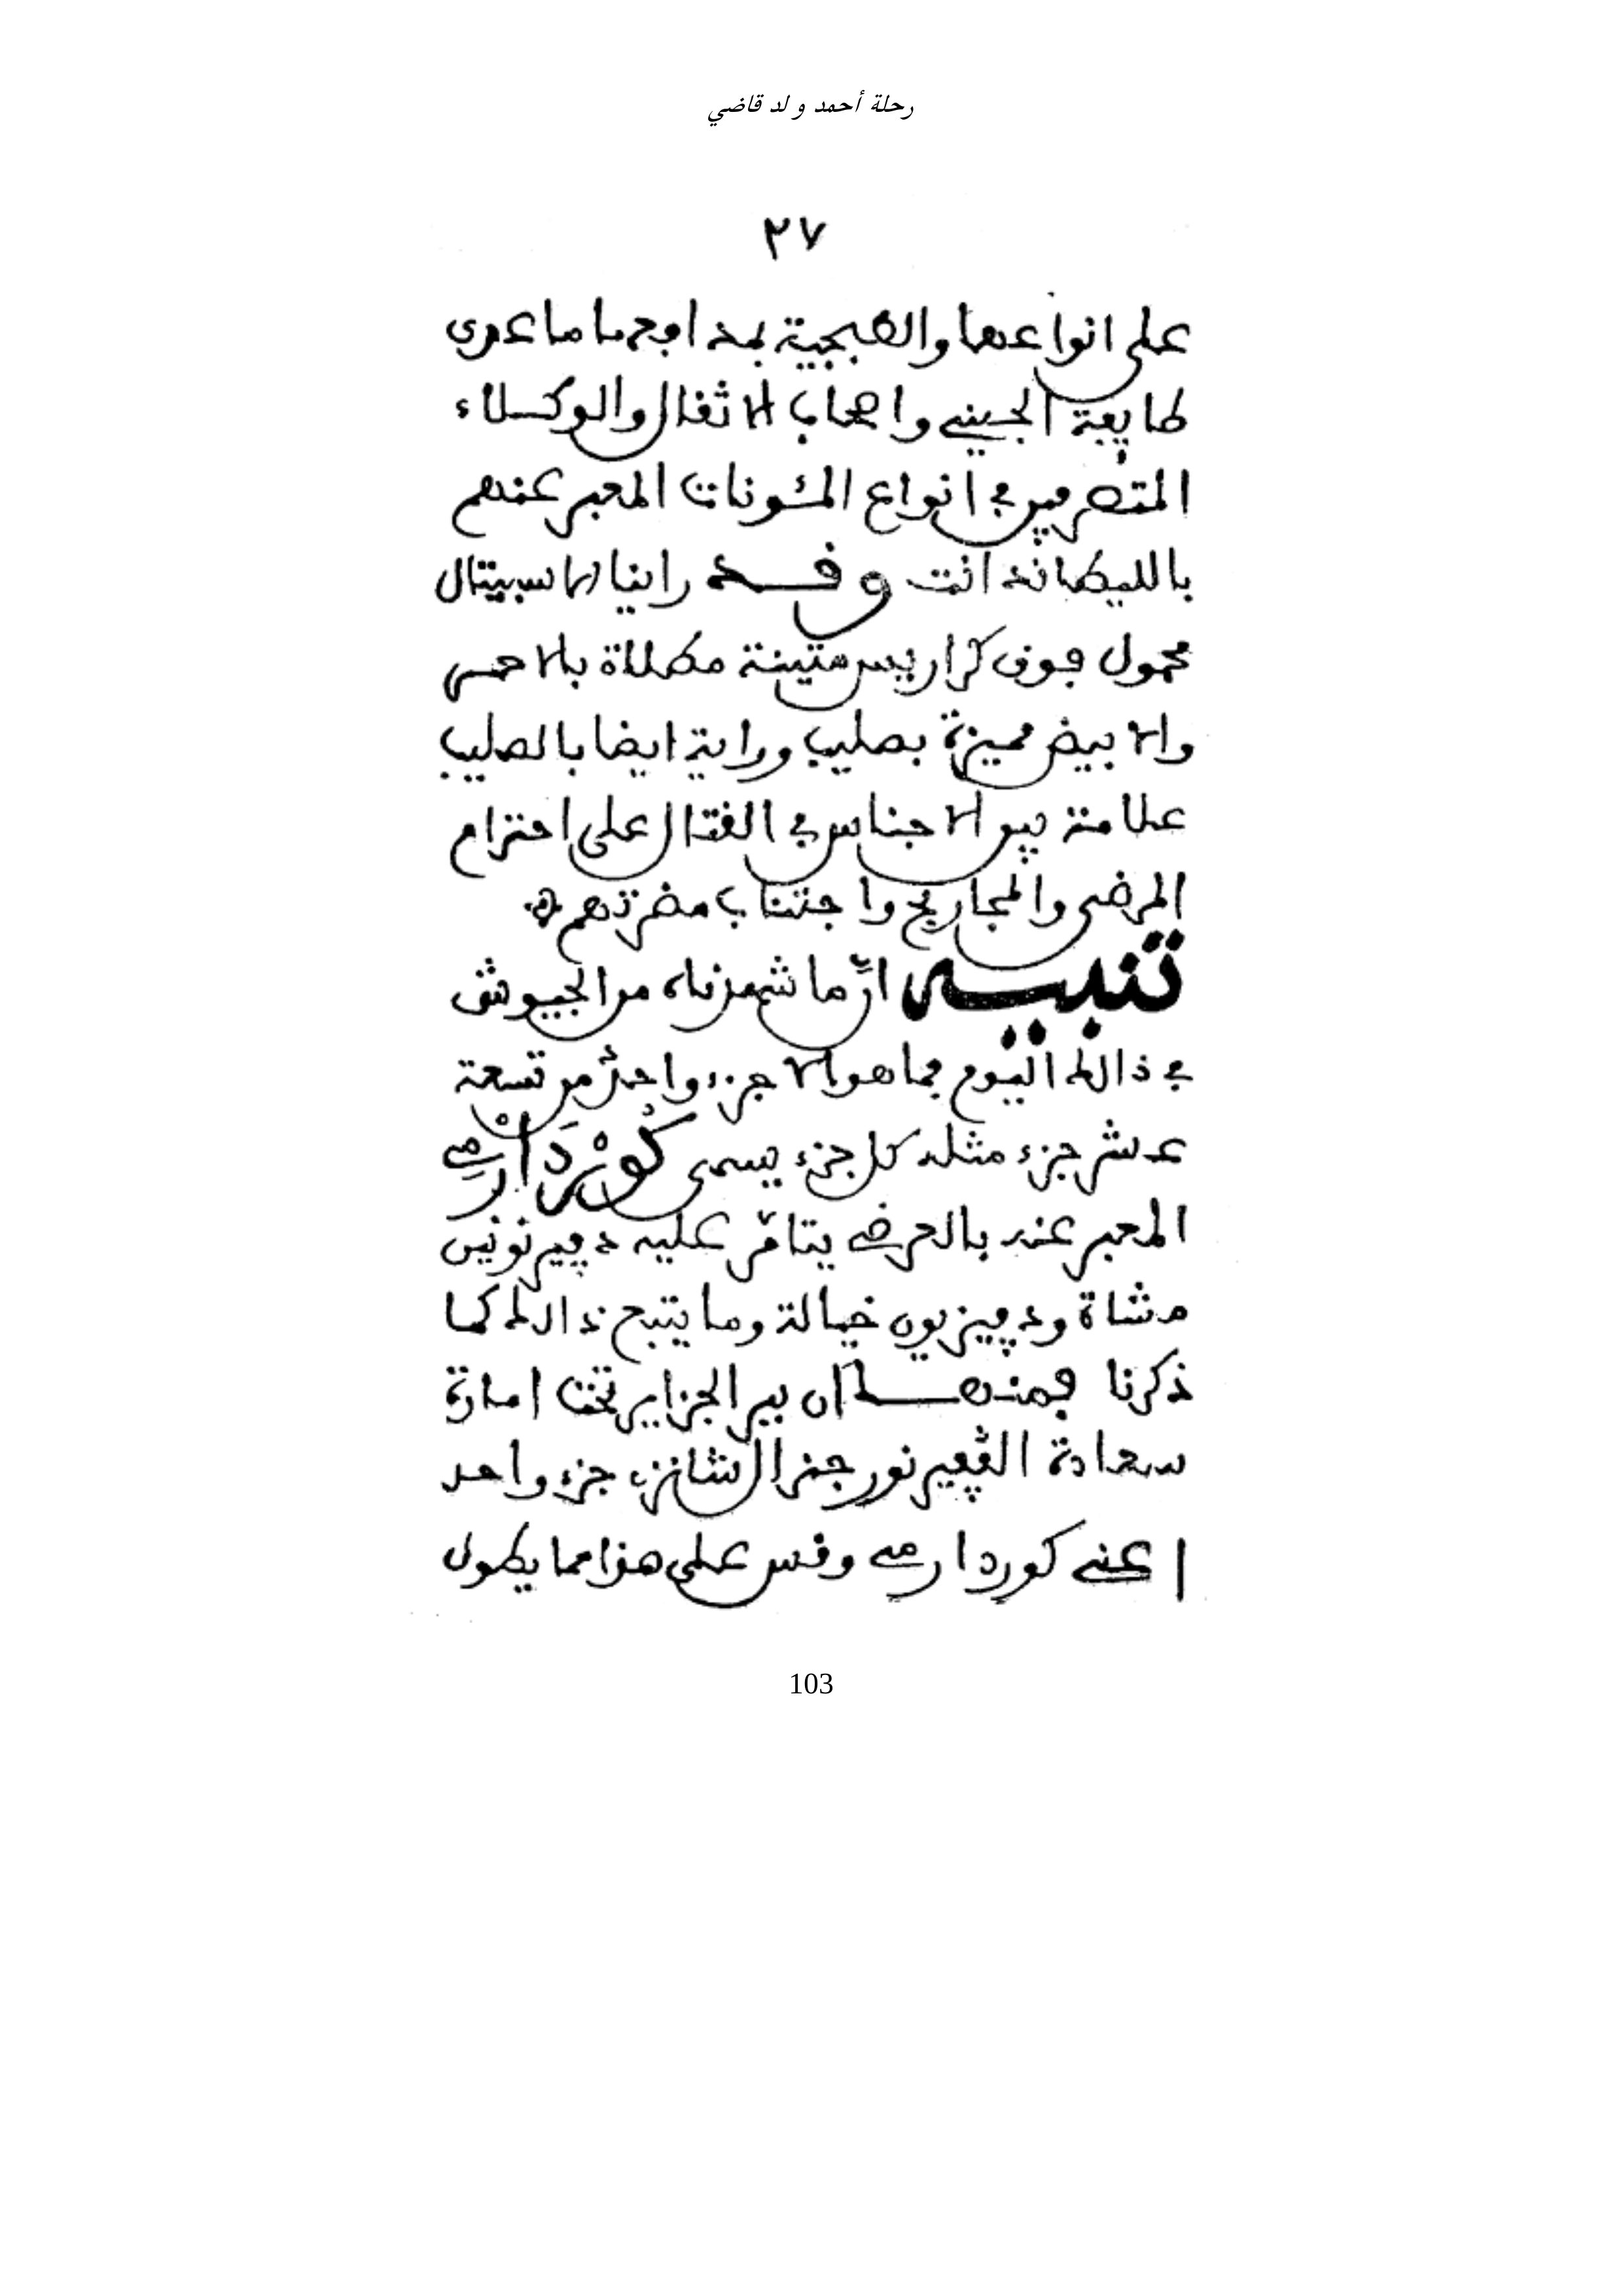 رحلة أحمد ولد قاضي
٢٧
على انواعها والطبجية بمدافعها ما عدى
طايفة الجيني واصحاب الاثقال والوكلاء
المتصرفين في انواع المئونات المعبر عنهم
بالليطاندانت وقد راينا لاسبيتال
محمول فوق كراريس متينة مطلاة بالاحمر
والابيض مميزة بصليب وراية ايضا بالصليب
علامة بين الاجناس في القتال على احترام
المرضى والمجاريح واجتناب مضرتهم
تنبيه ان ما شهدناه من الجيوش
في ذالك اليوم فما هو الا جزء واحد من تسعة
عشر جزء مثله كل جزء يسمى كُورْدَارْمِي
المعبر عنه بالعرضي يتامّر عليه دفيزنونين
مشاة ودفيزيون خيالة وما يتبع ذالك كما
ذكرنا فمنها ان بين الجزاير تحت امارة
سعادة الڨفيرنور جنرال شانزي جزء واحد
اعني كوردارمي وقس على هذا مما يطول
103